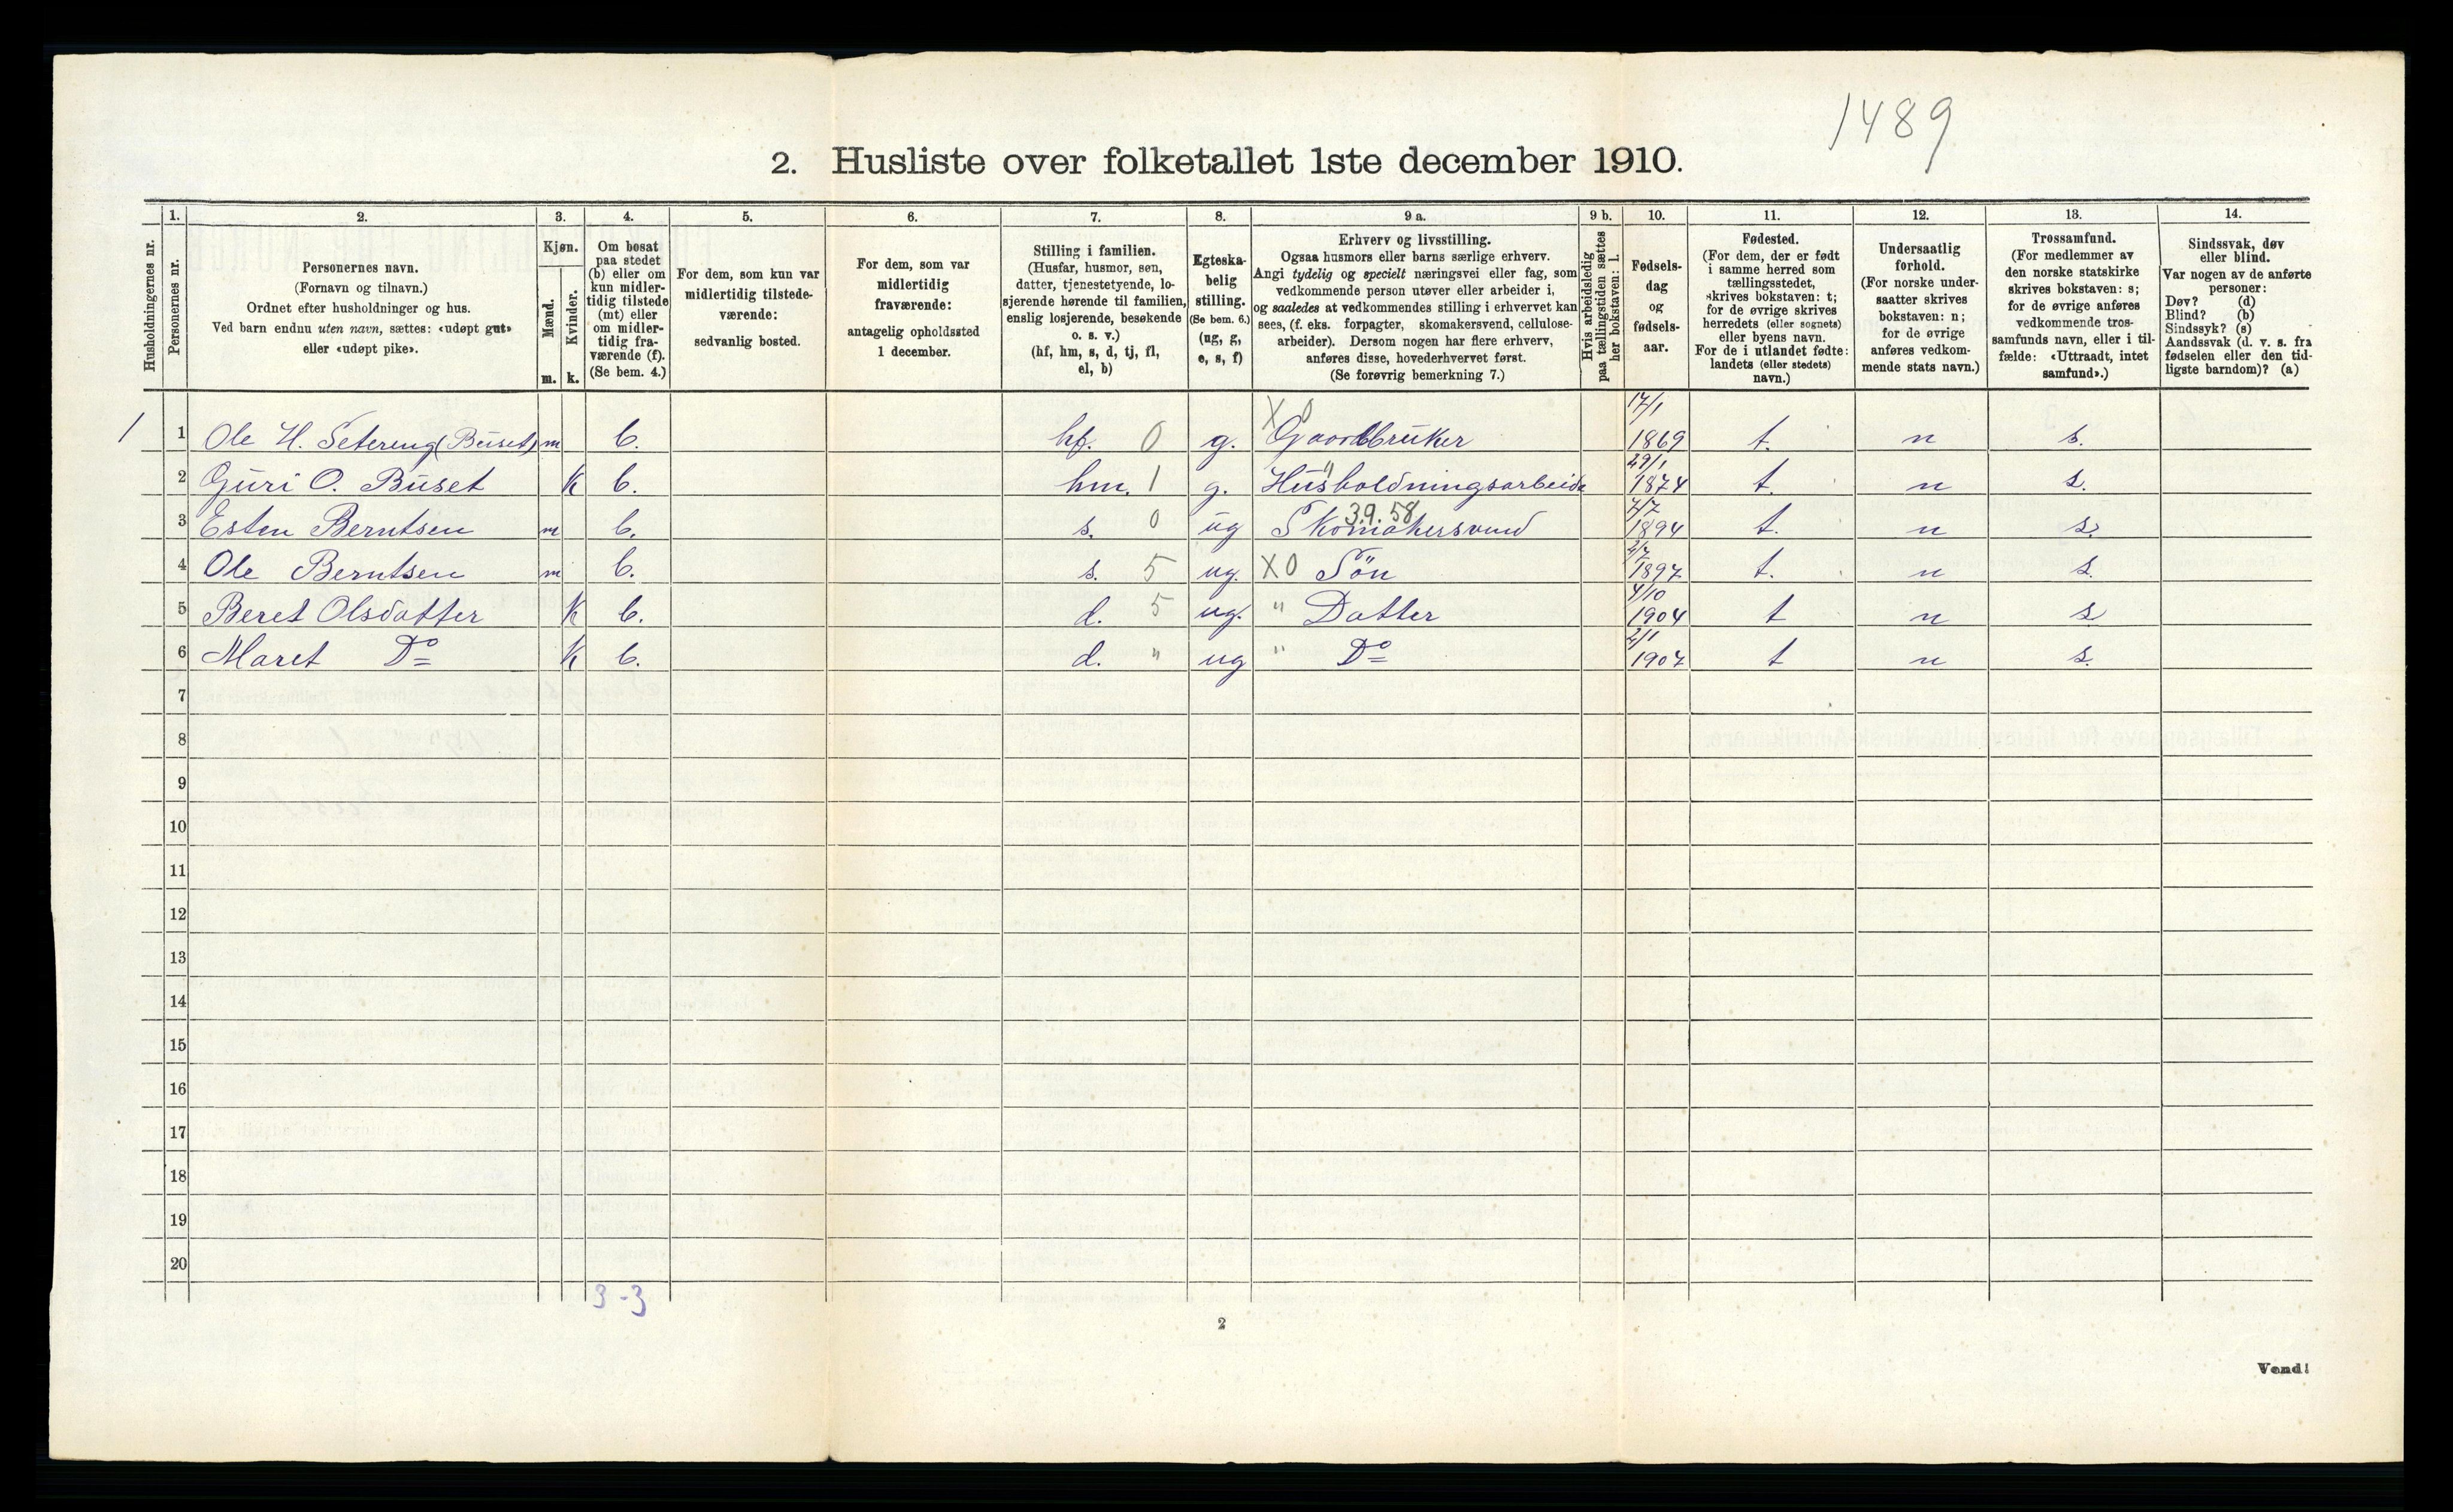 1489
2. Husliste over folketallet 1ste december 1910.
Husholdningernes nr.
1.
Personernes nr.
2.
Personernes navn.
(Fornavn og tilnavn.)
Ordnet efter husholdninger og hus.
Ved barn endnu uten navn, sættes: «udøpt gut»
eller «udøpt pike».
3.
Kjøn.
Mænd.
Kvinder.
m. k.
4.
Om bosat
paa stedet
(b) eller om
kun midler-
tidig tilstede
(mt) eller
om midler-
tidig fra-
værende (f).
(Se bem. 4.)
5.
For dem, som kun var
midlertidig tilstede-
værende:
sedvanlig bosted.
6.
For dem, som var
midlertidig
fraværende:
antagelig opholdssted
1 december.
7.
Stilling i familien.
(Husfar, husmor, søn,
datter, tjenestetyende, lo-
sjerende hørende til familien,
enslig losjerende, besøkende
o. s. v.)
(hf, hm, s, d, tj, fl,
el, b)
8.
Egteska-
belig
stilling.
(Se bem. 6.)
(ug, g,
e, s, f)
9 a.
Erhverv og livsstilling.
Ogsaa husmors eller barns særlige erhverv.
Angi tydelig og specielt næringsvei eller fag, som
vedkommende person utøver eller arbeider i,
og saaledes at vedkommendes stilling i erhvervet kan
sees, (f. eks. forpagter, skomakersvend, cellulose-
arbeider). Dersom nogen har flere erhverv,
anføres disse, hovederhvervet først.
(Se forøvrig bemerkning 7.)
9 b.
Hvis arbeidsledig
paa tællingstiden sættes
her bokstaven: l.
10.
Fødsels-
dag
og
fødsels-
aar.
11.
Fødested.
(For dem, der er født
i samme herred som
tællingsstedet,
skrives bokstaven: t;
for de øvrige skrives
herredets (eller sognets)
eller byens navn.
For de i utlandet fødte:
landets (eller stedets)
navn.)
12.
Undersaatlig
forhold.
(For norske under-
saatter skrives
bokstaven: n;
for de øvrige
anføres vedkom-
mende stats navn.)
13.
Trossamfund.
(For medlemmer av
den norske statskirke
skrives bokstaven: s;
for de øvrige anføres
vedkommende tros-
samfunds navn, eller i til-
fælde: «Uttraadt, intet
samfund».)
14.
Sindssvak, døv
eller blind.
Var nogen av de anførte
personer:
Døv? (d)
Blind? (b)
Sindssyk? (s)
Aandssvak (d. v. s. fra
fødselen eller den tid-
ligste barndom)? (a)
1 1 Ole H. Setereng (Buset) m b. hf. 0 g. X 0 Gaardbruker 17/1 1869 t. n s.
2 Guri O. Buset k b. hm. 1 g. " Husholdningsarbeide 29/1 1874 t. n s.
3 Esten Berntsen m b. s. 0 ug 3.9.58 Skomakersvend 7/7 1894 t. n s.
4 Ole Berntsen m b. s. 5 ug. X0 Sön 2/7 1897 t. n s.
5 Beret Olsdatter k b. d. 5 ug. " Datter 4/10 1904 t n s
6 Maret Do k b. d. " ug " Do 2/1 1907 t n s.
7
8
9
10
11
12
13
14
15
16
17
18
19
20
3-3
2
Vend!